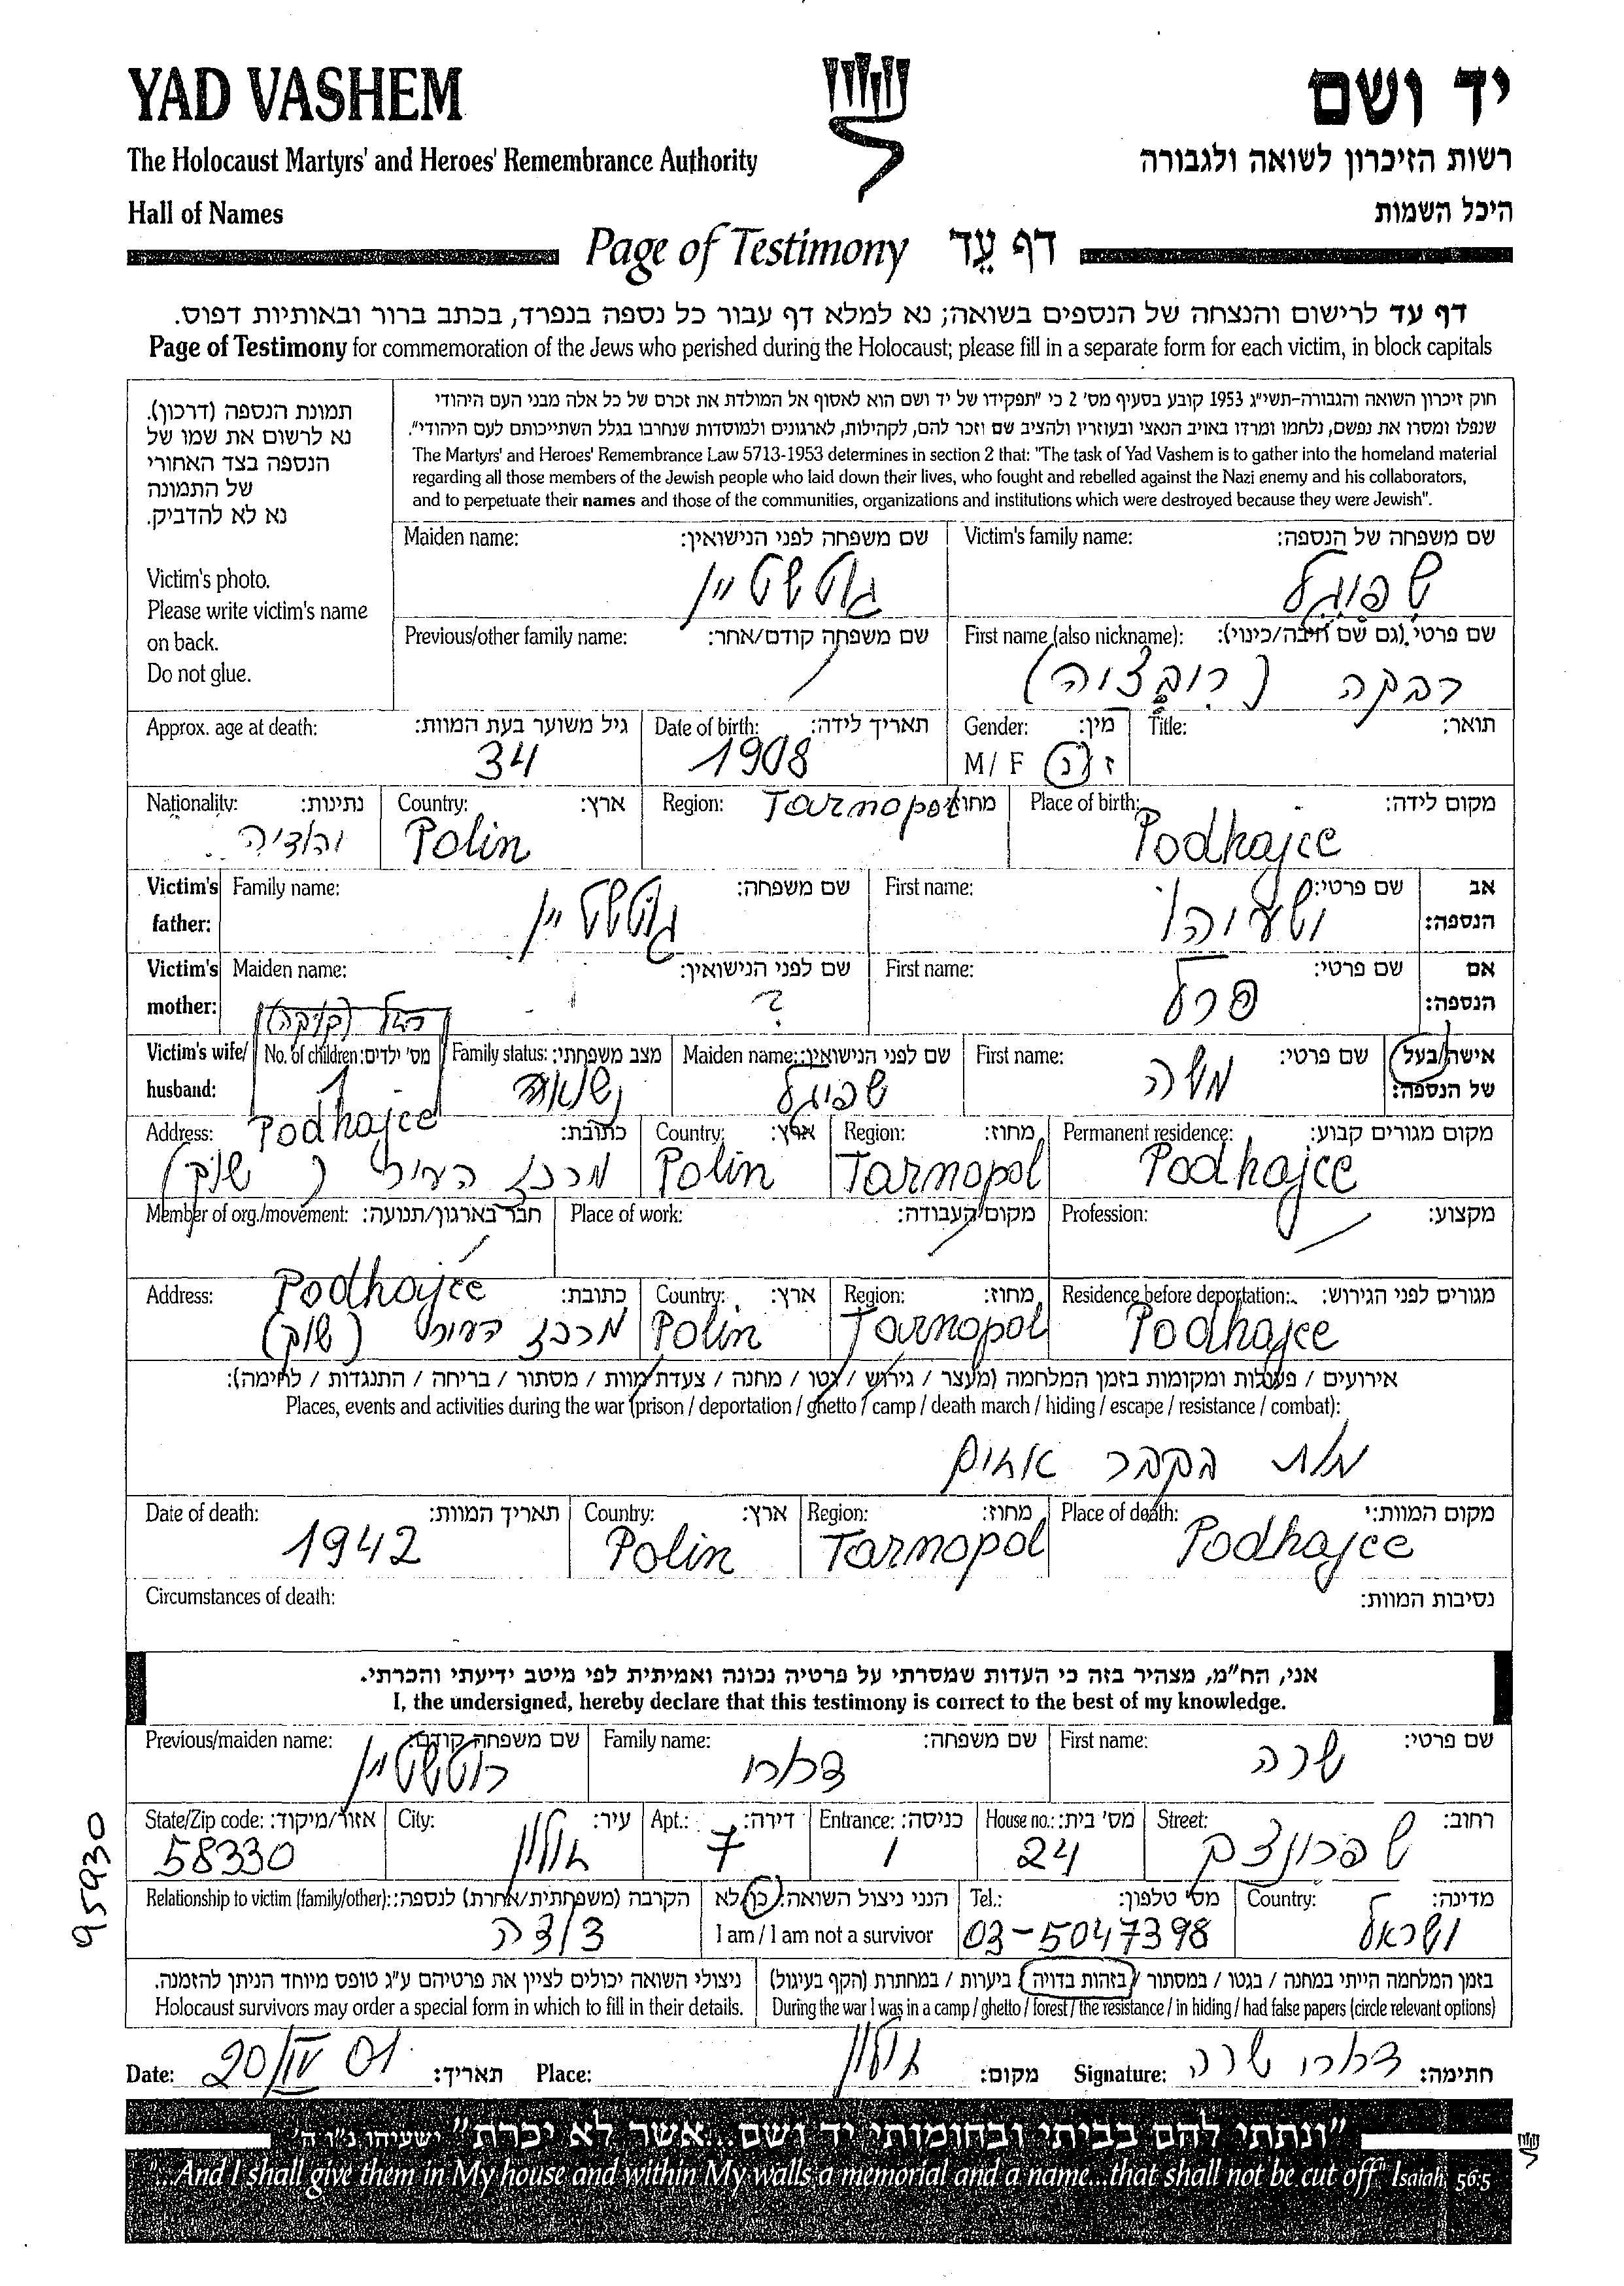 YAD VASHEM
יד ושם
The Holocaust Martyrs' and Heroes' Remembrance Authority
רשות הזיכרון לשואה ולגבורה
Hall of Names
היכל השמות
Page of Testimony דף עֵד
דף עד לרישום והנצחה של הנספים בשואה; נא למלא דף עבור כל נספה בנפרד, בכתב ברור ובאותיות דפוס.
Page of Testimony for commemoration of the Jews who perished during the Holocaust; please fill in a separate form for each victim, in block capitals
תמונת הנספה (דרכון).
נא לרשום את שמו של
הנספה בצד האחורי
של התמונה
נא לא להדביק.
Victim's photo.
Please write victim's name
on back.
Do not glue.
חוק זיכרון השואה והגבורה-תשי"ג 1953 קובע בסעיף מס' 2 כי "תפקידו של יד ושם הוא לאסוף אל המולדת את זכרם של כל אלה מבני העם היהודי
שנפלו ומסרו את נפשם, נלחמו ומרדו באויב הנאצי ובעוזריו ולהציב שם וזכר להם, לקהילות, לארגונים ולמוסדות שנחרבו בגלל השתייכותם לעם היהודי".
The Martyrs' and Heroes' Remembrance Law 5713-1953 determines in section 2 that: "The task of Yad Vashem is to gather into the homeland material
regarding all those members of the Jewish people who laid down their lives, who fought and rebelled against the Nazi enemy and his collaborators,
and to perpetuate their names and those of the communities, organizations and institutions which were destroyed because they were Jewish".
Victim's family name: שם משפחה של הנספה:
שפיגל
Maiden name: שם משפחה לפני הנישואין:
גוטשטיין
First name (also nickname): שם פרטי (גם שם חיבה/כינוי):
רבקה (ריבצה)
Previous/other family name: שם משפחה קודם/אחר:
Title: תואר:
Gender: מין:
M / F ז / נ
Date of birth: תאריך לידה:
1908
Approx. age at death: גיל משוער בעת המוות:
34
Place of birth: מקום לידה:
Podhajce
Region: מחוז:
Tarnopol
Country: ארץ:
Polin
Nationality: נתינות:
Victim's father: אב הנספה:
First name: שם פרטי:
ישעיהו
Family name: שם משפחה:
גוטשטיין
Victim's mother: אם הנספה:
First name: שם פרטי:
פרל
Maiden name: שם לפני הנישואין:
?
Victim's wife/ husband: אישה/בעל של הנספה:
First name: שם פרטי:
משה
Maiden name: שם לפני הנישואין:
שפיגל
Family status: מצב משפחתי:
נשואה
No. of children: מס' ילדים:
1
Permanent residence: מקום מגורים קבוע:
Podhajce
Region: מחוז:
Tarnopol
Country: ארץ:
Polin
Address: כתובת:
Podhajce
מרכז העיר (שוק)
Profession: מקצוע:
Place of work: מקום העבודה:
Member of org./movement: חבר בארגון/תנועה:
Residence before deportation: מגורים לפני הגירוש:
Podhajce
Region: מחוז:
Tarnopol
Country: ארץ:
Polin
Address: כתובת:
Podhajce
מרכז העיר (שוק)
אירועים / פעולות ומקומות בזמן המלחמה (מעצר / גירוש / גטו / מחנה / צעדת מוות / מסתור / בריחה / התנגדות / לחימה):
Places, events and activities during the war (prison / deportation / ghetto / camp / death march / hiding / escape / resistance / combat):
בקבר אחים
Place of death: מקום המוות:
Podhajce
Region: מחוז:
Tarnopol
Country: ארץ:
Polin
Date of death: תאריך המוות:
1942
Circumstances of death: נסיבות המוות:
אני, הח"מ, מצהיר בזה כי העדות שמסרתי על פרטיה נכונה ואמיתית לפי מיטב ידיעתי והכרתי.
I, the undersigned, hereby declare that this testimony is correct to the best of my knowledge.
First name: שם פרטי:
שרה
Family name: שם משפחה:
Previous/maiden name: שם משפחה קודם:
Street: רחוב:
שפרינצק
House no.: מס' בית:
24
Entrance: כניסה:
1
Apt.: דירה:
7
City: עיר:
חולון
State/Zip code: אזור/מיקוד:
58330
Country: מדינה:
ישראל
Tel.: מס' טלפון:
03-5047398
הנני ניצול השואה: כן/לא
I am / I am not a survivor
Relationship to victim (family/other): הקרבה (משפחתית/אחרת) לנספה:
דודה
בזמן המלחמה הייתי במחנה / בגטו / במסתור / בזהות בדויה / ביערות / במחתרת (הקף בעיגול)
During the war I was in a camp / ghetto / forest / the resistance / in hiding / had false papers (circle relevant options)
ניצולי השואה יכולים לציין את פרטיהם ע"ג טופס מיוחד הניתן להזמנה.
Holocaust survivors may order a special form in which to fill in their details.
95930
Date: 20/IV 01 תאריך:
Place: חולון מקום:
Signature: שרה חתימה:
"ונתתי להם בביתי ובחומותי יד ושם...אשר לא יכרת" ישעיהו נ"ו ה'
"...And I shall give them in My house and within My walls a memorial and a name...that shall not be cut off" Isaiah 56:5